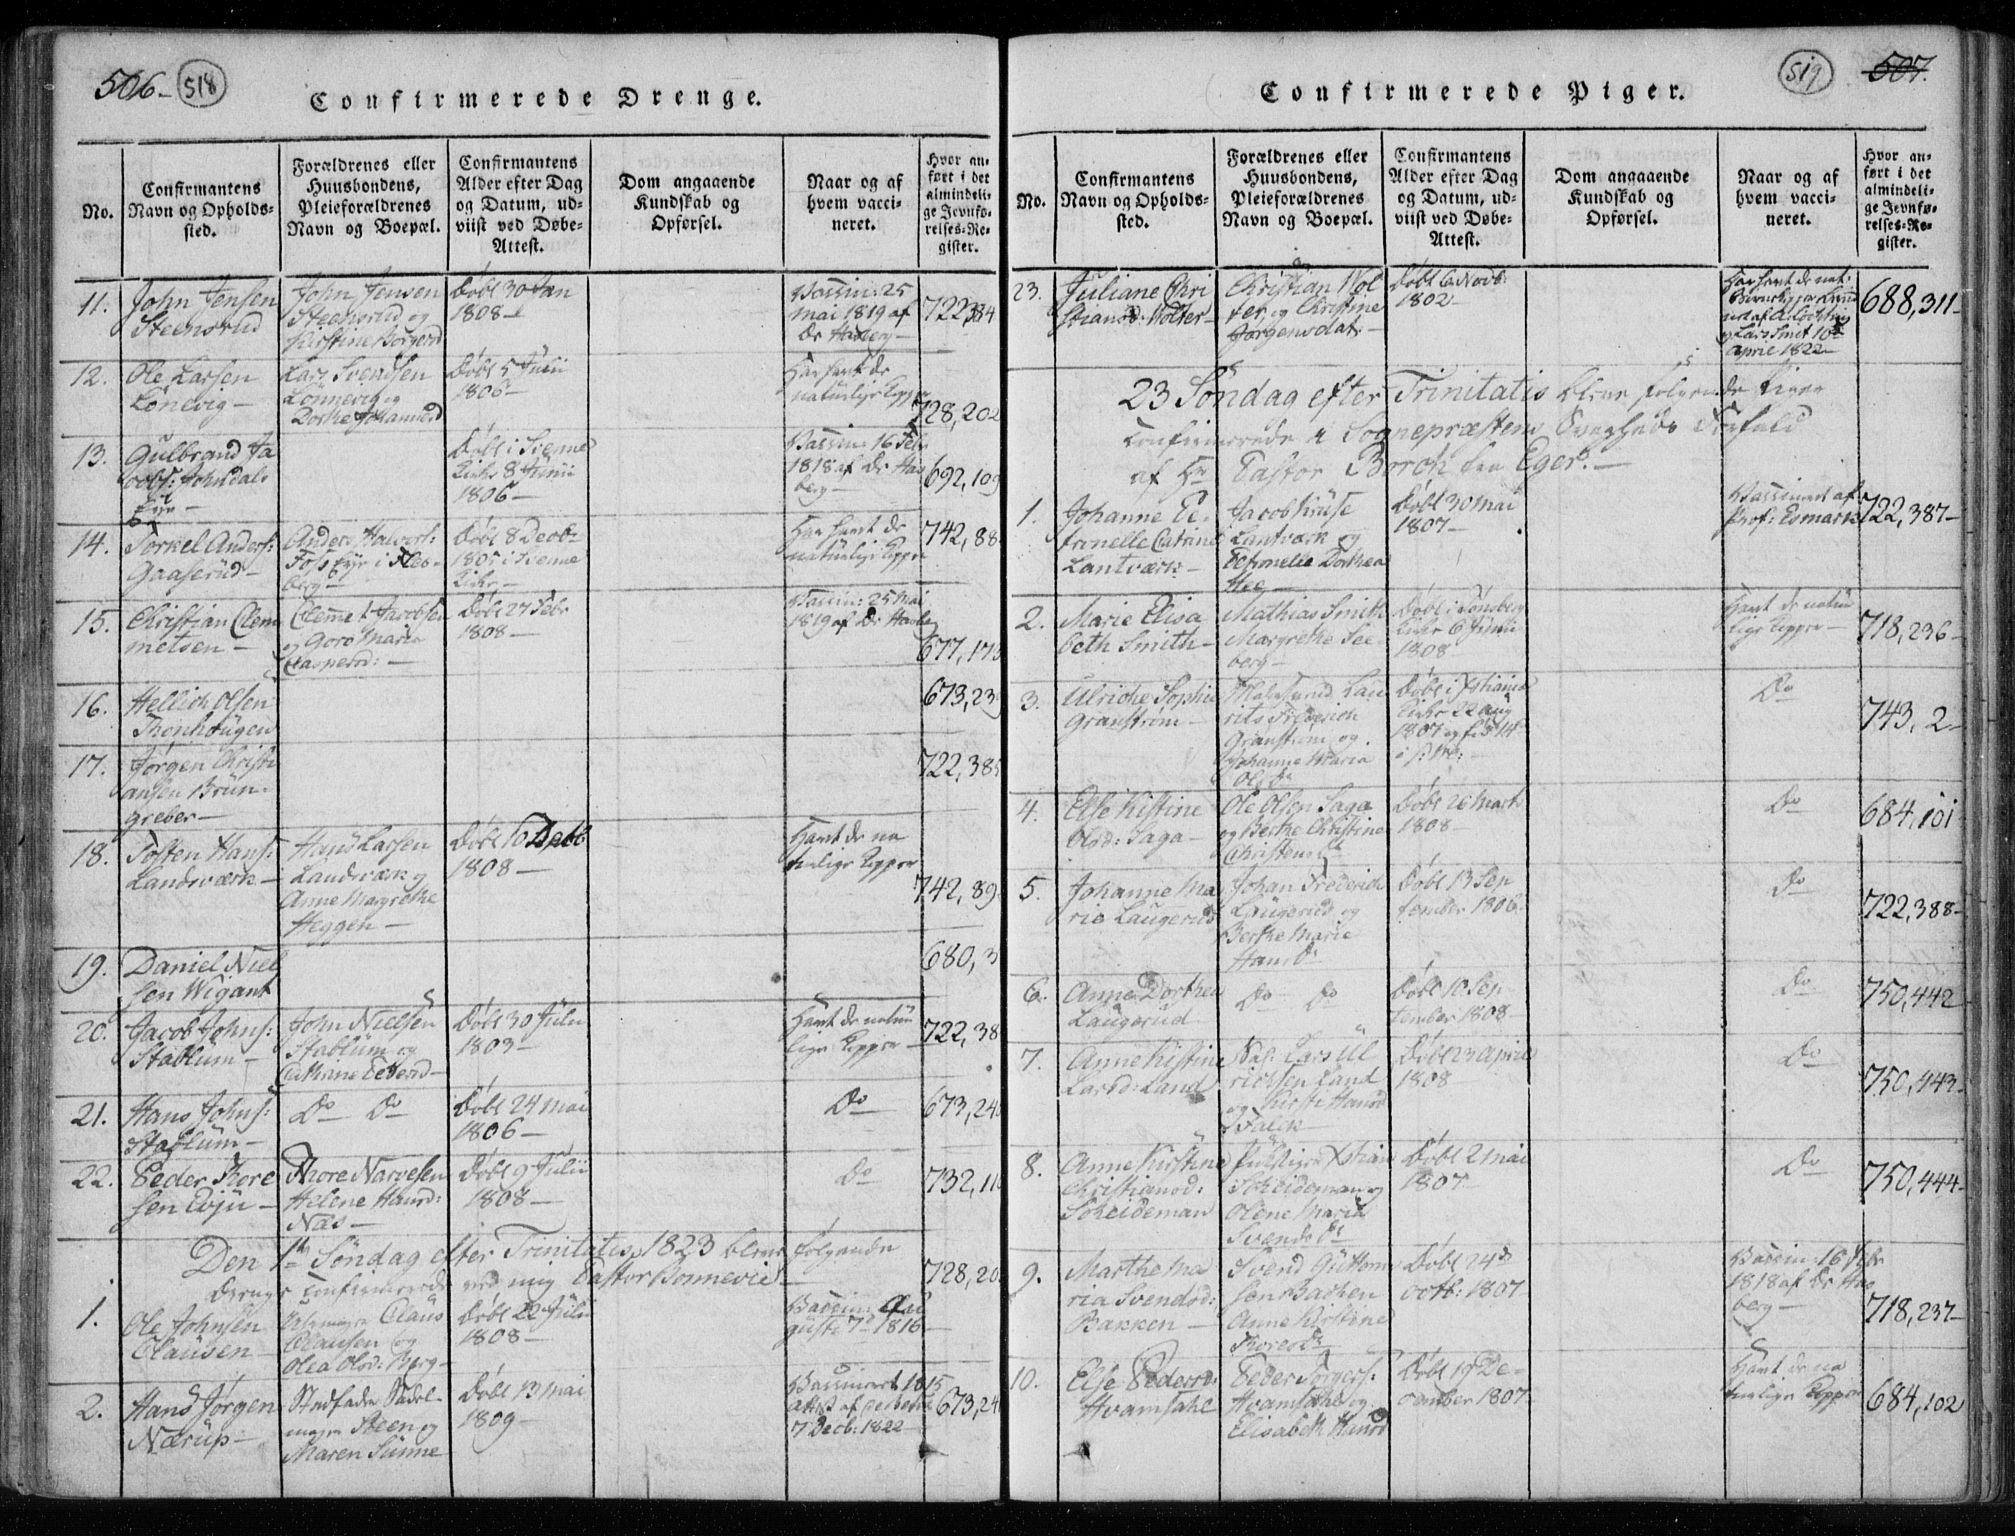 506 518
Confirmerede Drenge.
No.
Confirmantens
Navn og Opholds-
sted.
Forældrenes eller
Huusbondens,
Pleieforældrenes
Navn og Boepæl.
Confirmantens
Alder efter Dag
og Datum, ud-
viist ved Døbe-
Attest.
Dom angaaende
Kundskab og
Opførsel.
Naar og af
hvem vacci-
neret.
Hvor an-
ført i det
almindeli-
ge Jevnfø-
relses-Re-
gister.
11.
John Jensen
Steensrud
John Jensen
Steensrud og
Døbt 30 Jan
1808
Vaccin: 25
Mai 1819 af
Dr
722,
12.
Ole Larsen
Lönevig
Lars Svendsen
Lönnevig og
Dorthe
Døbt 5 Julii
1806
Har havt de
naturlige Kopper
728,202
13.
Gulbrand Ja
cobs: Johnsdals
Eje
Døbt i
Kirke 8 Junii
1806
Vaccin: 16 Feb
1818 af Dr Has
berg
692,109
14.
Torkel Anders:
Gaaserud
Anders Halvors:
Foss Eje i Fles-
berg
Døbt 8 Decbr
1805 i
Kirke
Har havt de
naturlige Kopper
742,88
15.
Christian Clem
metsen
Clemet Jacobsen
og Goro Maria
Døbt 27 Febr
1808
Vaccin: 25 Mai
1819 af Dr Hasbe
677,173
16.
Hellich Olsen
Thonhougen
673,239
17.
Jørgen Christi
ansen Brün-
greber
722,385
18.
Tosten Hans:
Landsværk
Hans Larsen
Landsværk og
Anne Margrethe
Heggen
Døbt 10
1808
Havt de na
turlige Kopper
742,89
19.
Daniel Niel
sen Wigant
680,3
20.
Jacob Johns:
Stablum
John Nielsen
Stablum og
Cathrine
Døbt 30 Julii
1803
Havt de natur
lige Kopper
722,38
21.
Hans Johns:
Stablum
Do Do
Døbt 24 Mai
1806
Do
673,24
22.
Peder Thore
sen Evju
Thore Narvesen
Helene Hansd:
Næs
Døbt 9 Julii
1808
Do
732,11
Den 1te Söndag efter Trinitatis 1823 bleve følgende
Drenge confirmerede ved mig Pastor Bonnevie
728,20
1.
Ole Johnsen
Clausen
Claus
Clausen og
Olea Olsd: Berg
Døbt 22 Julii
1808
Vaccin: Au
gusti 7de 1816
2.
Hans Jørgen
Nærup
Stedfader Sadel-
mager Steen og
Maren Sünne
Døbt 13 Mai
1809
Vaccineret 1815
Attest af
7 Decb: 1822
673,24
519 507.
Confirmerede Piger.
No.
Confirmantens
Navn og Opholds-
sted.
Forældrenes eller
Huusbondens,
Pleieforældrenes
Navn og Boepæl.
Confirmantens
Alder efter Dag
og Datum, ud-
viist ved Døbe-
Attest.
Dom angaaende
Kundskab og
Opførsel.
Naar og af
hvem vacci-
neret.
Hvor an-
ført i det
almindeli-
ge Jevnfø-
relses-Re-
gister.
23.
Juliane Chri
stiansd: Wolter
Christian Wol
ter, og Christine
Jørgensdat:
Døbt 6 Novb:
1802
Har havt de nat:
og Lars Smet 10de
April 1822
688,311
23 Söndag efter Trinitatis bleve følgende Piger
confirmerede i Sognepræstens Svagheds Forfald
af Hr Pastor Borch fra Eger.
1.
Johanne Pe-
tronelle Catrine
Lantværk
Jacob Kruse
Lantværk og
Petronelle Dorthea
Hee
Døbt 30 Mai
1807
Vaccineret af
Prof: Esmark
722,387
2.
Marie Elisa
beth Smith
Mathias Smith
Margrethe See-
berg
Døbt i Tönsberg
Kirke 6 Junii
1808
Havt de natur
lige Kopper
718,236
3.
Ulriche Sophie
Granström
Lau
rits Friderich
Granström og
Johanne Maria
Olsdr
Døbt i
Kirke 22 Aug
1807
Do
743,2
4.
Else Kistine
Olsd: Saga
Ole Olsen Saga
og Berthe Christine
Christensdt
Døbt 26 Marts
1808
Do
684,101
5.
Johanne Ma
rie Laugerud
Johan Frederich
Laugerud og
Berthe Marie
Hansdr
Døbt 13 Sep
tember 1806
Do
722,388
6.
Anne Dorthea
Laugerud
Do Do
Døbt 10 Sep
tember 1808
Do
750,442
7.
Anne Kistine
Larsd: Land
Lars Ul
richsen Land
og Kirsti Hansd
Falck
Døbt 23 April
1808
Do
750,443
8.
Anne Kirstine
Christiansd:
Scheideman
Xstian
Scheideman og
Olene Maria
Svendsdt
Døbt 2 Mai
1807
Do
750,444
9.
Marthe Ma
ria Svendsd:
Bakken
Svend Guttorm
sen Bachen
Anne Kirstine
Thoresdr
Døbt 24de
octb: 1807
Vaccin: 16 Febr
1818 af Dr Has
berg
718,237
10.
Else Pedersd:
Hvamsahl
Peder Torgers:
Hvamsahl og
Elisabeth Hansd
Døbt 19 De-
cember 1807
Havt de na
turlige Kopper
684,102